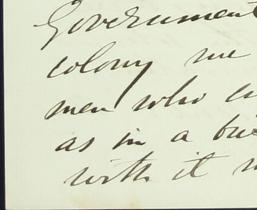 Government
colony me
men who
as in a
with it